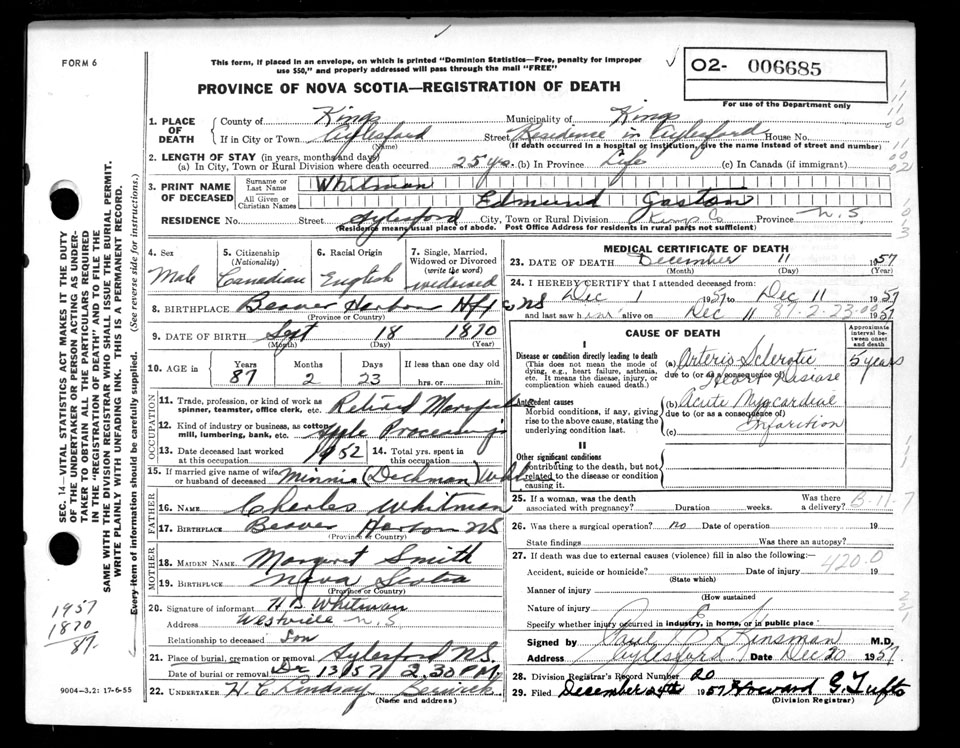 FORM 6
This form, if placed in an envelope, on which is printed "Dominion Statistics—Free, penalty for improper
use $50," and properly addressed will pass through the mail "FREE"
O2- 006685
PROVINCE OF NOVA SCOTIA—REGISTRATION OF DEATH
For use of the Department only
1. PLACE OF DEATH County of Kings Municipality of Kings
If in City or Town Aylesford Street Residence in Aylesford House No.
(Name) (If death occurred in a hospital or institution, give the name instead of street and number)
2. LENGTH OF STAY (in years, months and days)
(a) In City, Town or Rural Division where death occurred 25 yrs. (b) In Province Life (c) In Canada (if immigrant)
3. PRINT NAME OF DECEASED Surname or Last Name Whitman
All Given or Christian Names Edmund Gaston
RESIDENCE No. Street Aylesford City, Town or Rural Division Kings Co Province N.S
(Residence means usual place of abode. Post Office Address for residents in rural parts not sufficient)
4. Sex Male
5. Citizenship (Nationality) Canadian
6. Racial Origin English
7. Single, Married, Widowed or Divorced (write the word) widowed
8. BIRTHPLACE Beaver Harbor Hfx Co NS
(Province or Country)
9. DATE OF BIRTH Sept 18 1870
(Month) (Day) (Year)
10. AGE in Years 87 Months 2 Days 23 If less than one day old
hrs. or min.
OCCUPATION
11. Trade, profession, or kind of work as spinner, teamster, office clerk, etc. Retired
12. Kind of industry or business, as cotton mill, lumbering, bank, etc. Apple Processing
13. Date deceased last worked at this occupation 1952 14. Total yrs. spent in this occupation
15. If married give name of wife or husband of deceased Minnie (Dechman)
FATHER
16. NAME Charles Whitman
17. BIRTHPLACE Beaver Harbor NS
(Province or Country)
MOTHER
18. MAIDEN NAME Margaret Smith
19. BIRTHPLACE Nova Scotia
(Province or Country)
20. Signature of informant H B Whitman
Address Westville N.S
Relationship to deceased Son
21. Place of burial, cremation or removal Aylesford N.S.
Date of burial or removal 13 1957 2.30 P.M.
22. UNDERTAKER H. C. Lindsay Berwick
(Name and address)
MEDICAL CERTIFICATE OF DEATH
23. DATE OF DEATH December 11 1957
(Month) (Day) (Year)
24. I HEREBY CERTIFY that I attended deceased from
Dec 1 1957 to Dec 11 1957
and last saw him alive on Dec 11 1957
87-2-23-00
CAUSE OF DEATH
Approximate interval between onset and death
I
Disease or condition directly leading to death
(This does not mean the mode of dying, e.g., heart failure, asthenia, etc. It means the disease, injury, or complication which caused death.)
(a) Arterio Sclerotic Heart Disease 5 years
due to (or as a consequence of)
Antecedent causes
Morbid conditions, if any, giving rise to the above cause, stating the underlying condition last.
(b) Acute Myocardial
due to (or as a consequence of)
(c) Infarction
II
Other significant conditions
contributing to the death, but not related to the disease or condition causing it.
25. If a woman, was the death associated with pregnancy? Duration weeks. Was there a delivery?
B-11-7
26. Was there a surgical operation? no Date of operation 19
State findings Was there an autopsy?
27. If death was due to external causes (violence) fill in also the following:
420.0
Accident, suicide or homicide? Date of injury 19
(State which)
Manner of injury
(How sustained
Nature of injury
Specify whether injury occurred in industry, in home, or in public place
Signed by Paul E Kinsman M.D.
Address Aylesford Date Dec 20 1957
28. Division Registrar's Record Number 20
29. Filed December 24th 1957 Howard G. Tufts
(Division Registrar)
SEC. 14—VITAL STATISTICS ACT MAKES IT THE DUTY
OF THE UNDERTAKER OR PERSON ACTING AS UNDERTAKER TO OBTAIN ALL THE PARTICULARS REQUIRED
IN THE "REGISTRATION OF DEATH" AND TO FILE THE
SAME WITH THE DIVISION REGISTRAR WHO SHALL ISSUE THE BURIAL PERMIT.
WRITE PLAINLY WITH UNFADING INK. THIS IS A PERMANENT RECORD.
Every item of information should be carefully supplied. (See reverse side for instructions.)
1957
1870
87.
9004-3,2: 17-6-55